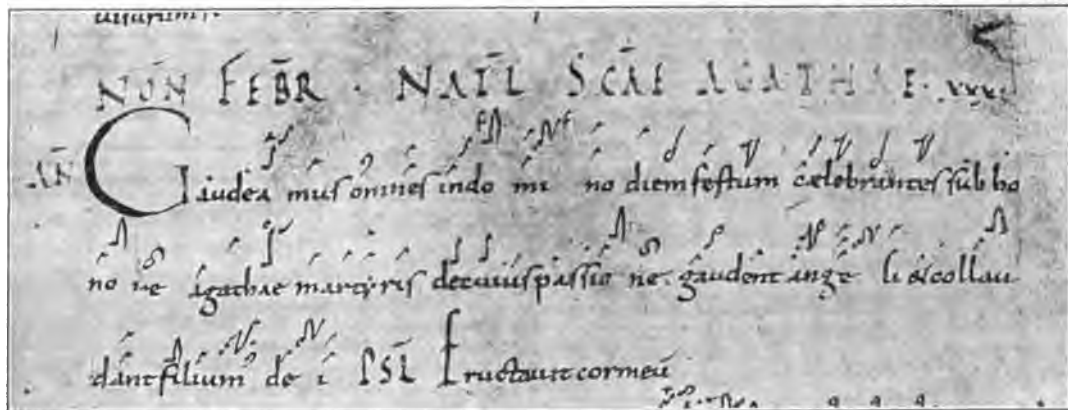 NON̄ FEB̄R · NAT̄L SC̄AE AGATHAE · xxx
AN̄ Gaudea mus omnes indo mi no diem festum celebrantes sub ho
no re agathae martyris decuius passio ne · gaudent ange li & collau
dant filium de i PSL̄ Eructauit cor meū